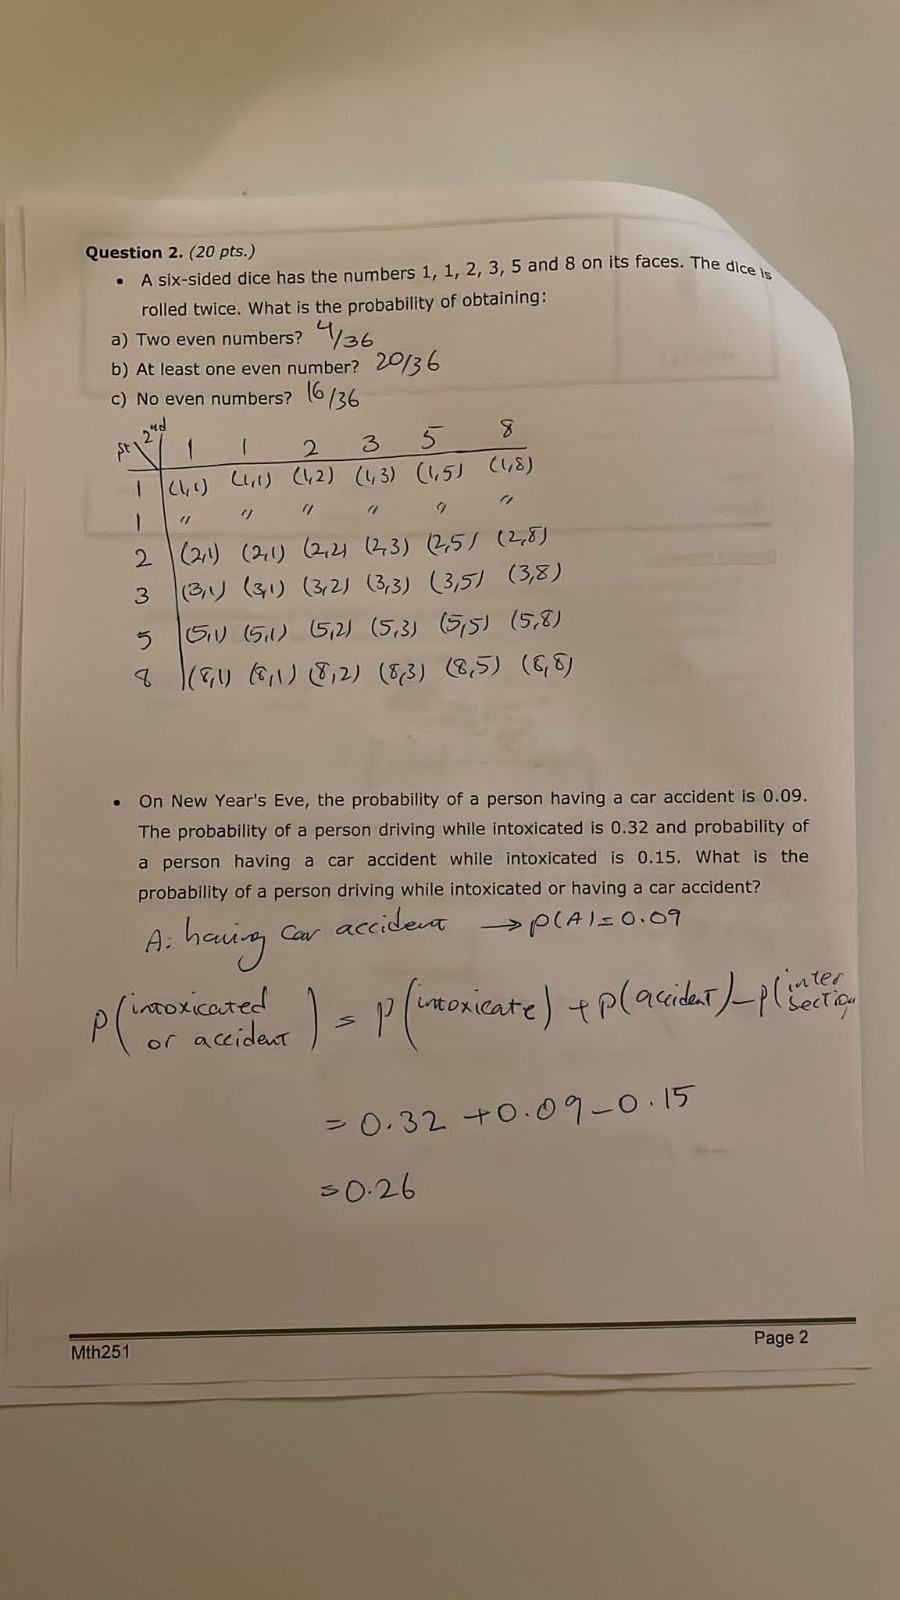 Question 2. (20 pts.)
• A six-sided dice has the numbers 1, 1, 2, 3, 5 and 8 on its faces. The dice is
rolled twice. What is the probability of obtaining:
a) Two even numbers? 4/36
b) At least one even number? 20/36
c) No even numbers? 16/36
1st \ 2nd | 1 1 2 3 5 8
1 | (1,1) (1,1) (1,2) (1,3) (1,5) (1,8)
1 | " " " " " "
2 | (2,1) (2,1) (2,2) (2,3) (2,5) (2,8)
3 | (3,1) (3,1) (3,2) (3,3) (3,5) (3,8)
5 | (5,1) (5,1) (5,2) (5,3) (5,5) (5,8)
8 | (8,1) (8,1) (8,2) (8,3) (8,5) (8,8)
• On New Year's Eve, the probability of a person having a car accident is 0.09.
The probability of a person driving while intoxicated is 0.32 and probability of
a person having a car accident while intoxicated is 0.15. What is the
probability of a person driving while intoxicated or having a car accident?
A: having car accident → P(A) = 0.09
P(intoxicated or accident) = P(intoxicate) + P(accident) - P(intersection
= 0.32 + 0.09 - 0.15
= 0.26
Mth251
Page 2